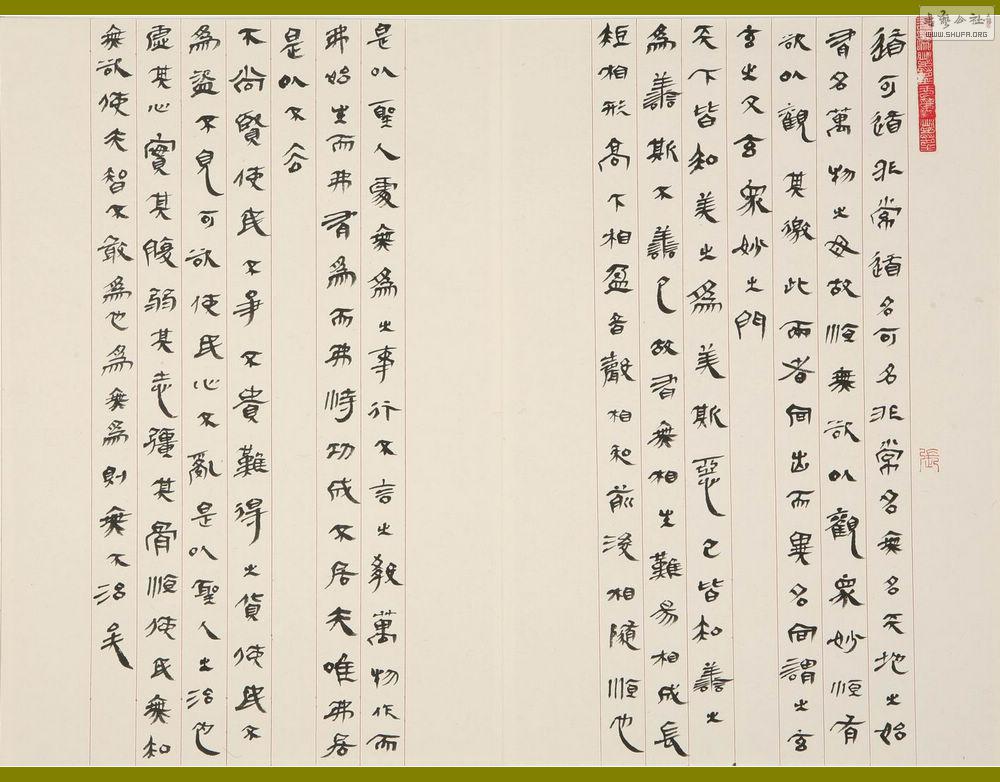 道可道非常道名可名非常名無名天地之始
有名萬物之母故恆無欲以觀眾妙恆有
欲以觀其徼此兩者同出而異名同謂之玄
玄之又玄眾妙之門
天下皆知美之為美斯惡已皆知善之
為善斯不善已故有無相生難易相成長
短相形高下相盈音聲相和前後相隨恆也
是以聖人處無為之事行不言之教萬物作而
弗始生而弗有為而弗恃功成不居夫唯弗居
是以不去
不尚賢使民不爭不貴難得之貨使民不
為盜不見可欲使民心不亂是以聖人之治也
虛其心實其腹弱其志彊其骨恆使民無知
無欲使夫智不敢為也為無為則無不治矣
張
書藝公社
WWW.SHUFA.ORG